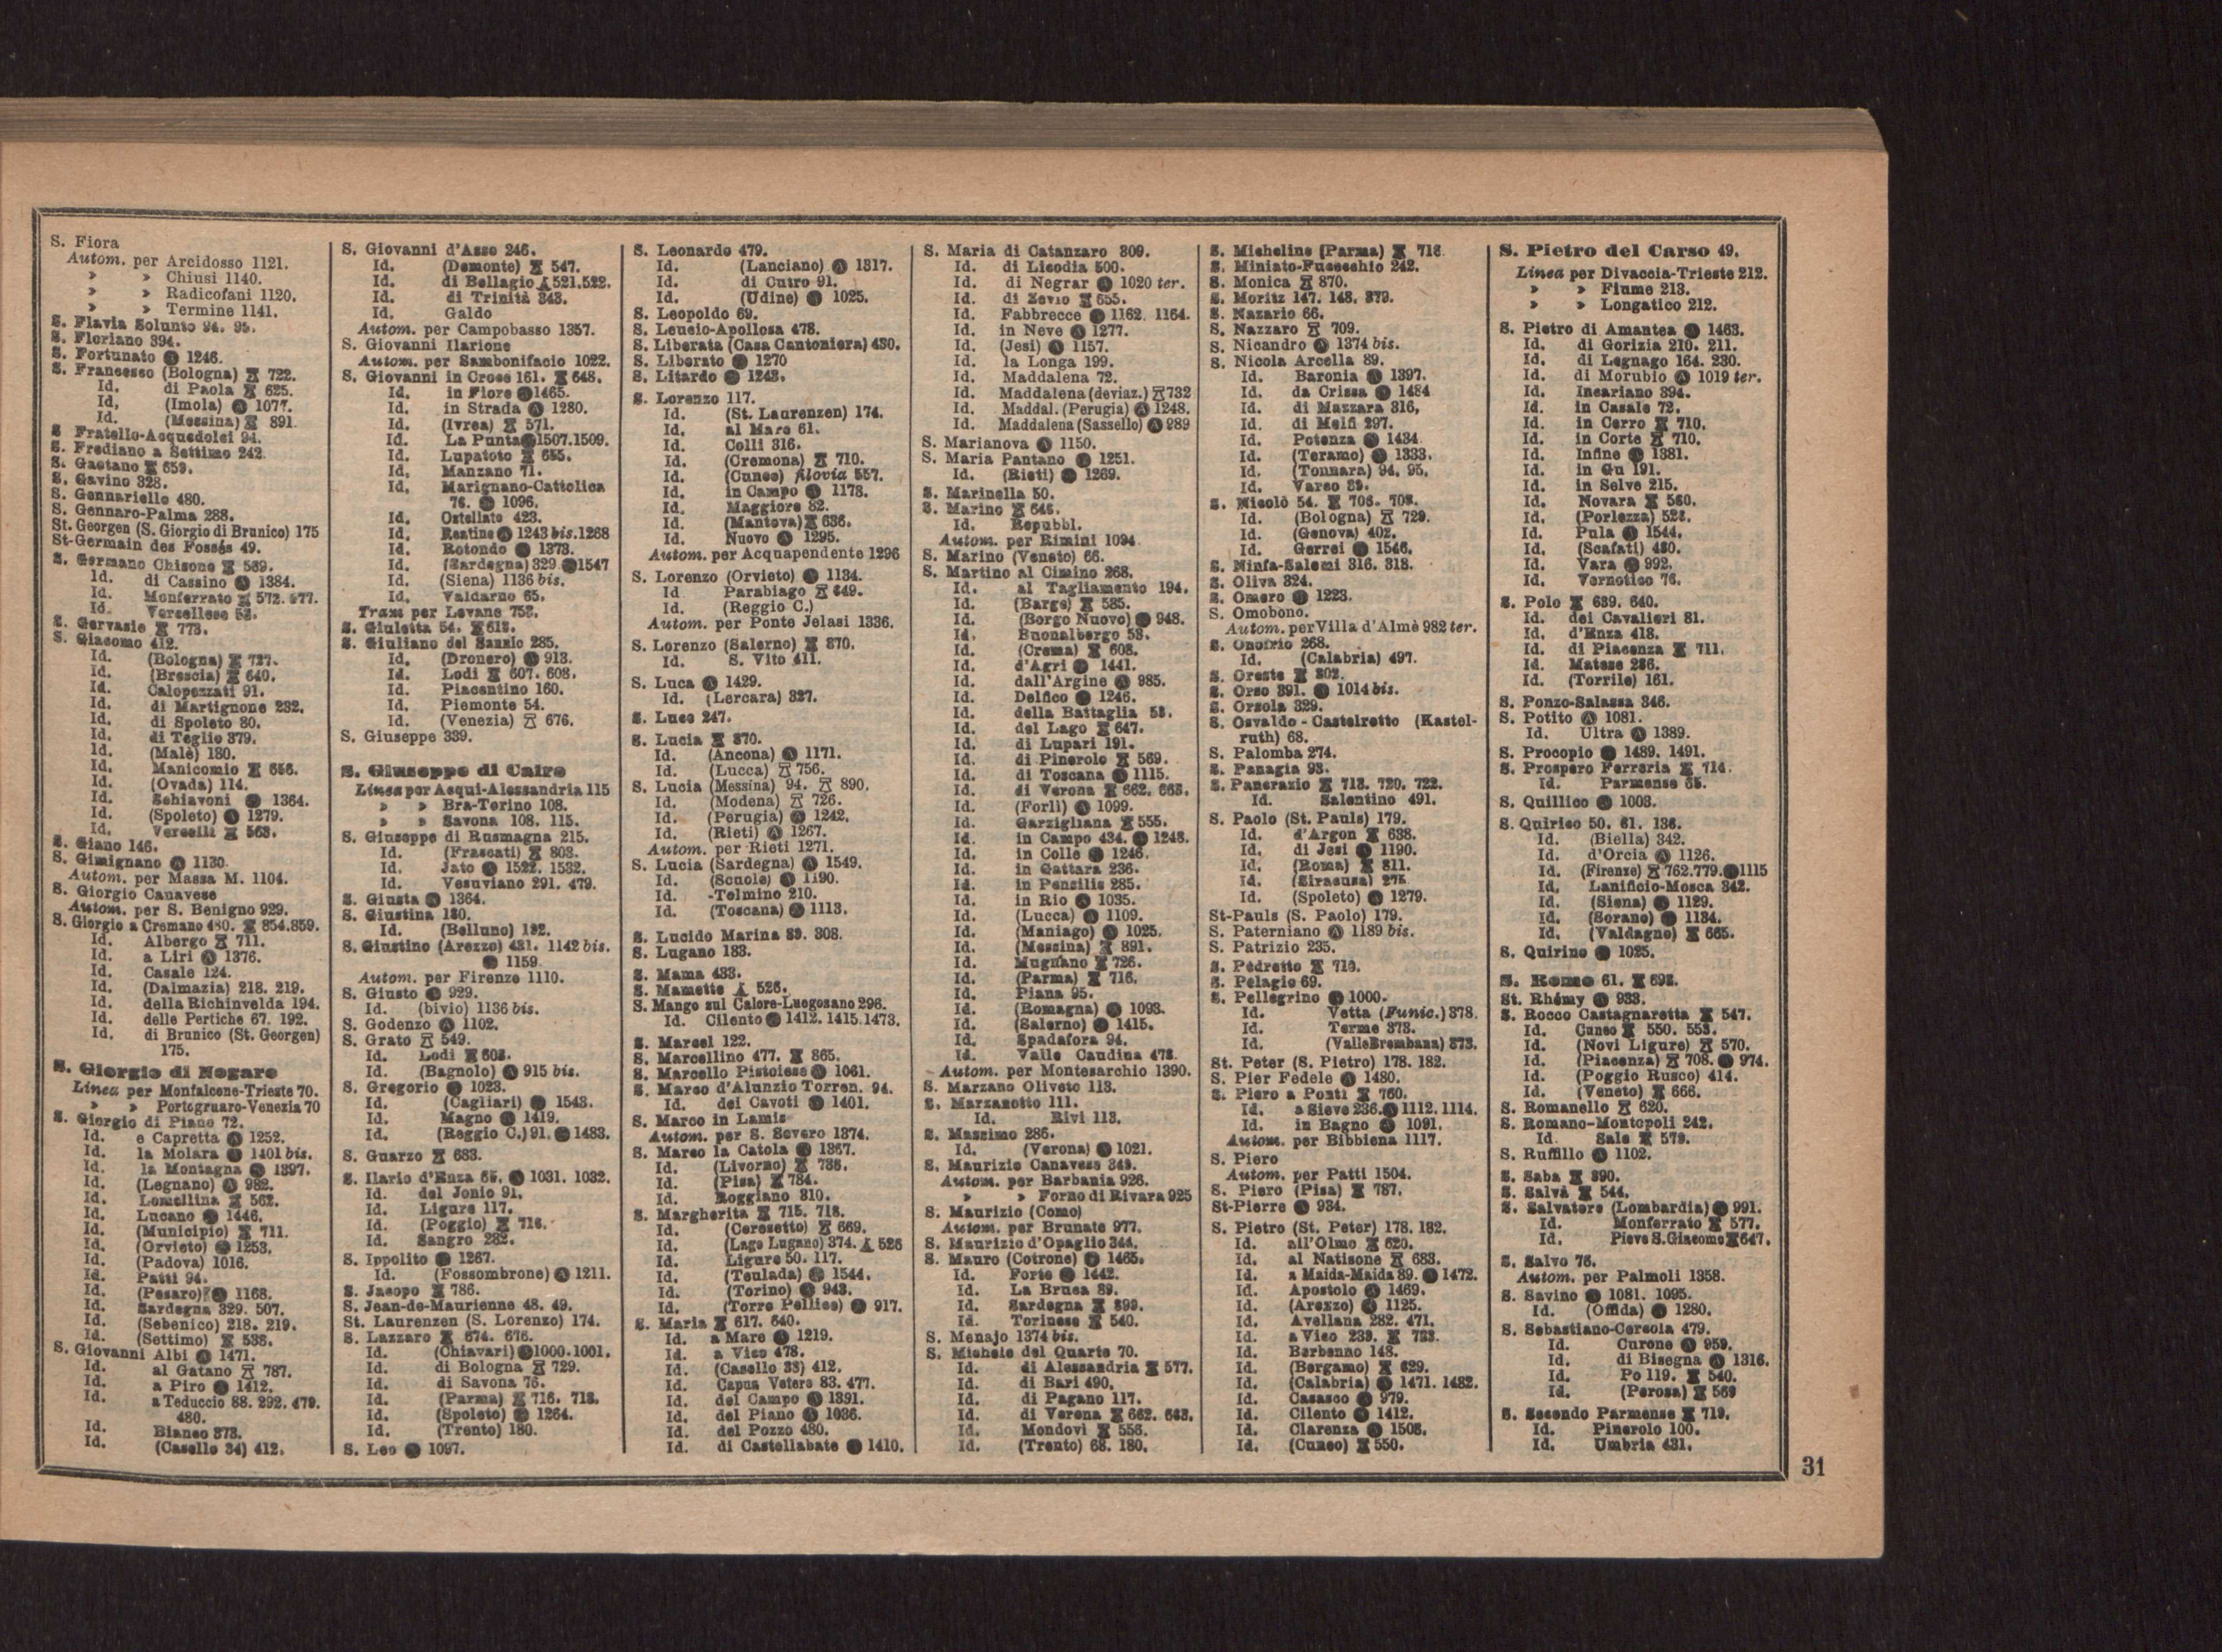 S. Fiora
Autom. per Arcidosso 1121.
» » Chiusi 1140.
» » Radicofani 1120.
» » Termine 1141.
S. Flavia Solunto 94. 95.
S. Floriano 394.
S. Fortunato 1246.
S. Francesco (Bologna) 722.
Id. di Paola 625.
Id. (Imola) 1077.
Id. (Messina) 891.
S Fratello-Acquedolci 94.
S. Frediano a Settimo 242
S. Gaetano 659.
S. Gavino 328.
S. Gennariello 480.
S. Gennaro-Palma 288.
St. Georgen (S. Giorgio di Brunico) 175
St-Germain des Fossés 49.
S. Germano Chisone 569.
Id. di Cassino 1384.
Id. Monferrato 572. 577.
Id. Vercellese 53.
S. Gervasio 773.
S. Giacomo 412.
Id. (Bologna) 727.
Id. (Brescia) 640.
Id. Calopezzati 91.
Id. di Martignone 232.
Id. di Spoleto 80.
Id. di Teglio 379.
Id. (Malè) 180.
Id. Manicomio 656.
Id. (Ovada) 114.
Id. Schiavoni 1364.
Id. (Spoleto) 1279.
Id. Vercelli 563.
S. Giano 146.
S. Gimignano 1130.
Autom. per Massa M. 1104.
S. Giorgio Canavese
Autom. per S. Benigno 929.
S. Giorgio a Cremano 480. 854.859.
Id. Albergo 711.
Id. a Liri 1376.
Id. Casale 124.
Id. (Dalmazia) 218. 219.
Id. della Richinvelda 194.
Id. delle Pertiche 67. 192.
Id. di Brunico (St. Georgen)
175.
S. Giorgio di Nogaro
Linea per Monfalcone-Trieste 70.
» » Portogruaro-Venezia 70
S. Giorgio di Piano 72.
Id. e Capretta 1252.
Id. la Molara 1401 bis.
Id. la Montagna 1397.
Id. (Legnano) 982.
Id. Lomellina 562.
Id. Lucano 1446.
Id. (Municipio) 711.
Id. (Orvieto) 1253.
Id. (Padova) 1016.
Id. Patti 94.
Id. (Pesaro) 1168.
Id. Sardegna 329. 507.
Id. (Sebenico) 218. 219.
Id. (Settimo) 538.
S. Giovanni Albi 1471.
Id. al Gatano 787.
Id. a Piro 1412.
Id. a Teduccio 88. 292. 479.
480.
Id. Bianco 373.
Id. (Casello 34) 412.
S. Giovanni d'Asso 246.
Id. (Demonte) 547.
Id. di Bellagio 521.522.
Id. di Trinità 343.
Id. Galdo
Autom. per Campobasso 1357.
S. Giovanni Ilarione
Autom. per Sambonifacio 1022.
S. Giovanni in Croce 161. 648.
Id. in Fiore 1465.
Id. in Strada 1280.
Id. (Ivrea) 571.
Id. La Punta 1507.1509.
Id. Lupatoto 655.
Id. Manzano 71.
Id. Marignano-Cattolica
76. 1096.
Id. Ostellato 423.
Id. Reatino 1243 bis. 1268
Id. Rotondo 1373.
Id. (Sardegna) 329 1547
Id. (Siena) 1136 bis.
Id. Valdarno 65.
Tram per Levane 753.
S. Giuletta 54. 613.
S. Giuliano del Sannio 285.
Id. (Dronero) 913.
Id. Lodi 607. 608.
Id. Piacentino 160.
Id. Piemonte 54.
Id. (Venezia) 676.
S. Giuseppe 339.
S. Giuseppe di Cairo
Linea per Acqui-Alessandria 115
» » Bra-Torino 108.
» » Savona 108. 115.
S. Giuseppe di Rusmagna 215.
Id. (Frascati) 803.
Id. Jato 1522. 1532.
Id. Vesuviano 291. 479.
S. Giusta 1364.
S. Giustina 180.
Id. (Belluno) 192.
S. Giustino (Arezzo) 431. 1142 bis.
1159
Autom. per Firenze 1110.
S. Giusto 929.
Id. (bivio) 1136 bis.
S. Godenzo 1102.
S. Grato 549.
Id. Lodi 608.
Id. (Bagnolo) 915 bis.
S. Gregorio 1023.
Id. (Cagliari) 1543.
Id. Magno 1419.
Id. (Reggio C.) 91. 1483.
S. Guarzo 683.
S. Ilario d'Enza 65. 1031. 1032.
Id. del Jonio 91.
Id. Ligure 117.
Id. (Poggio) 716.
Id. Sangro 282.
S. Ippolito 1267.
Id. (Fossombrone) 1211.
S. Jacopo 786.
S. Jean-de-Maurienne 48. 49.
St. Laurenzen (S. Lorenzo) 174.
S. Lazzaro 674. 676.
Id. (Chiavari) 1000.1001.
Id. di Bologna 729.
Id. di Savona 76.
Id. (Parma) 716. 718.
Id. (Spoleto) 1264.
Id. (Trento) 180.
S. Leo 1097.
S. Leonardo 479.
Id. (Lanciano) 1317.
Id. di Cutro 91.
Id. (Udine) 1025.
S. Leopoldo 69.
S. Leucio-Apollosa 478.
S. Liberata (Casa Cantoniera) 430.
S. Liberato 1270
S. Litardo 1243.
S. Lorenzo 117.
Id. (St. Laurenzen) 174.
Id. al Mare 61.
Id. Colli 316.
Id. (Cremona) 710.
Id. (Cuneo) filovia 557.
Id. in Campo 1178.
Id. Maggiore 82.
Id. (Mantova) 636.
Id. Nuovo 1295.
Autom. per Acquapendente 1296
S. Lorenzo (Orvieto) 1134.
Id Parabiago 649.
Id. (Reggio C.)
Autom. per Ponte Jelasi 1336.
S. Lorenzo (Salerno) 870.
Id. S. Vito 411.
S. Luca 1429.
Id. (Lercara) 327.
S. Luce 247.
S. Lucia 870.
Id. (Ancona) 1171.
Id. (Lucca) 756.
S. Lucia (Messina) 94. 890.
Id. (Modena) 726.
Id. (Perugia) 1242.
Id. (Rieti) 1267.
Autom. per Rieti 1271.
S. Lucia (Sardegna) 1549.
Id. (Scuole) 1190.
Id. -Tolmino 210.
Id. (Toscana) 1113.
S. Lucido Marina 89. 308.
S. Lugano 183.
S. Mama 433.
S. Mamette 526.
S. Mango sul Calore-Luogosano 296.
Id. Cilento 1412. 1415.1473.
S. Marcel 122.
S. Marcellino 477. 865.
S. Marcello Pistoiese 1061.
S. Marco d'Alunzio Torren. 94.
Id. dei Cavoti 1401.
S. Marco in Lamis
Autom. per S. Severo 1374.
S. Marco la Catola 1367.
Id. (Livorno) 786.
Id. (Pisa) 784.
Id. Roggiano 310.
S. Margherita 715. 718.
Id. (Ceresetto) 669.
Id. (Lago Lugano) 374. 526
Id. Ligure 50. 117.
Id. (Teulada) 1544.
Id. (Torino) 943.
Id. (Torre Pellice) 917.
S. Maria 617. 640.
Id. a Mare 1219.
Id. a Vico 478.
Id. (Casello 33) 412.
Id. Capua Vetere 83. 477.
Id. del Campo 1391.
Id. del Piano 1036.
Id. del Pozzo 480.
Id. di Castellabate 1410.
S. Maria di Catanzaro 309.
Id. di Licodia 500.
Id. di Negrar 1020 ter.
Id. di Zevio 655.
Id. Fabbrecce 1162. 1164.
Id. in Neve 1277.
Id. (Jesi) 1157.
Id. la Longa 199.
Id. Maddalena 72.
Id. Maddalena (deviaz.) 732
Id. Maddal. (Perugia) 1248.
Id. Maddalena (Sassello) 989
S. Marianova 1150.
S. Maria Pantano 1251.
Id. (Rieti) 1269.
S. Marinella 50.
S. Marino 646.
Id. Repubbl.
Autom. per Rimini 1094
S. Marino (Veneto) 66.
S. Martino al Cimino 268.
Id. al Tagliamento 194.
Id. (Barge) 585.
Id. (Borgo Nuovo) 948.
Id. Buonalbergo 53.
Id. (Crema) 608.
Id. d'Agri 1441.
Id. dall'Argine 985.
Id. Delfico 1246.
Id. della Battaglia 53.
Id. del Lago 647.
Id. di Lupari 191.
Id. di Pinerolo 569.
Id. di Toscana 1115.
Id. di Verona 662. 663.
Id. (Forlì) 1099.
Id. Garzigliana 555.
Id. in Campo 434. 1248.
Id. in Colle 1246.
Id. in Gattara 236.
Id. in Pensilis 285.
Id. in Rio 1035.
Id. (Lucca) 1109.
Id. (Maniago) 1025.
Id. (Messina) 891.
Id. Mugnano 726.
Id. (Parma) 716.
Id. Piana 95.
Id. (Romagna) 1093.
Id. (Salerno) 1415.
Id. Spadafora 94.
Id. Valle Caudina 478.
Autom. per Montesarchio 1390.
S. Marzano Oliveto 113.
S. Marzanotto 111.
Id. Rivi 113.
S. Massimo 286.
Id. (Verona) 1021.
S. Maurizio Canavese 343.
Autom. per Barbania 926.
» » Forno di Rivara 925
S. Maurizio (Como)
Autom. per Brunate 977.
S. Maurizio d'Opaglio 344.
S. Mauro (Cotrone) 1465.
Id. Forte 1442.
Id. La Bruca 89.
Id. Sardegna 899.
Id. Torinese 540.
S. Menajo 1374 bis.
S. Michele del Quarto 70.
Id. di Alessandria 577.
Id. di Bari 490.
Id. di Pagano 117.
Id. di Verona 662. 663.
Id. Mondovì 556.
Id. (Trento) 68. 180.
S. Michelino (Parma) 718
S. Miniato-Fucecchio 242.
S. Monica 870.
S. Moritz 147. 148. 379.
S. Nazario 66.
S. Nazzaro 709.
S. Nicandro 1374 bis.
S. Nicola Arcella 89.
Id. Baronia 1397.
Id. da Crissa 1484
Id. di Mazzara 316,
Id. di Melfi 297.
Id. Potenza 1434
Id. (Teramo) 1333.
Id. (Tonnara) 94. 95.
Id. Varco 89.
S. Nicolò 54. 706. 708.
Id. (Bologna) 729.
Id. (Genova) 402.
Id. Gerrei 1546.
S. Ninfa-Salemi 316. 318.
S. Oliva 324.
S. Omero 1223.
S. Omobono.
Autom. per Villa d'Almè 982 ter.
S. Onofrio 268.
Id. (Calabria) 497.
S. Oreste 802.
S. Orso 391. 1014 bis.
S. Orsola 329.
S. Osvaldo - Castelrotto (Kastel-
ruth) 68.
S. Palomba 274.
S. Panagia 93.
S. Pancrazio 713. 720. 722.
Id. Salentino 491.
S. Paolo (St. Pauls) 179.
Id. d'Argon 638.
Id. di Jesi 1190.
Id. (Roma) 811.
Id. (Siracusa) 275
Id. (Spoleto) 1279.
St-Pauls (S. Paolo) 179.
S. Paterniano 1189 bis.
S. Patrizio 235.
S. Pedretto 719.
S. Pelagio 69.
S. Pellegrino 1000.
Id. Vetta (Funic.) 378.
Id. Terme 373.
Id. (Valle Brembana) 373.
St. Peter (S. Pietro) 178. 182.
S. Pier Fedele 1480.
S. Piero a Ponti 760.
Id. a Sieve 236. 1112. 1114.
Id. in Bagno 1091.
Autom. per Bibbiena 1117.
S. Piero
Autom. per Patti 1504.
S. Piero (Pisa) 787.
St-Pierre 934.
S. Pietro (St. Peter) 178. 182.
Id. all'Olmo 620.
Id. al Natisone 683.
Id. a Maida-Maida 89. 1472.
Id. Apostolo 1469.
Id. (Arezzo) 1125.
Id. Avellana 282. 471.
Id. a Vico 239. 753.
Id. Berbenno 148.
Id. (Bergamo) 629.
Id. (Calabria) 1471. 1482.
Id. Casasco 979.
Id. Cilento 1412.
Id. Clarenza 1508.
Id. (Cuneo) 550.
S. Pietro del Carso 49.
Linea per Divaccia-Trieste 212.
» » Fiume 213.
» » Longatico 212.
S. Pietro di Amantea 1463.
Id. di Gorizia 210. 211.
Id. di Legnago 164. 230.
Id. di Morubio 1019 ter.
Id. Incariano 394.
Id. in Casale 72.
Id. in Cerro 710.
Id. in Corte 710.
Id. Infine 1381.
Id. in Gu 191.
Id. in Selve 215.
Id. Novara 560.
Id. (Porlezza) 523.
Id. Pula 1544.
Id. (Scafati) 480.
Id. Vara 992.
Id. Vernotico 76.
S. Polo 639. 640.
Id. dei Cavalieri 81.
Id. d'Enza 418.
Id. di Piacenza 711.
Id. Matese 286.
Id. (Torrile) 161.
S. Ponzo-Salassa 346.
S. Potito 1081.
Id. Ultra 1389.
S. Procopio 1489. 1491.
S. Prospero Ferraria 714.
Id. Parmense 65.
S. Quillico 1003.
S. Quirico 50. 61. 136.
Id. (Biella) 342.
Id. d'Orcia 1126.
Id. (Firenze) 762.779. 1115
Id. Lanificio-Mosca 342.
Id. (Siena) 1129.
Id. (Sorano) 1134.
Id. (Valdagno) 665.
S. Quirino 1025.
S. Remo 61. 693.
St. Rhémy 933.
S. Rocco Castagnaretta 547.
Id. Cuneo 550. 553.
Id. (Novi Ligure) 570.
Id. (Piacenza) 708. 974.
Id. (Poggio Rusco) 414.
Id. (Veneto) 666.
S. Romanello 620.
S. Romano-Montopoli 242.
Id. Sale 579.
S. Ruffillo 1102.
S. Saba 890.
S. Salvà 544.
S. Salvatore (Lombardia) 991.
Id. Monferrato 577.
Id. Pieve S.Giacomo 647.
S. Salvo 76.
Autom. per Palmoli 1358.
S. Savino 1081. 1095.
Id. (Offida) 1280.
S. Sebastiano-Cercola 479.
Id. Curone 959.
Id. di Bisegna 1316.
Id. Po 119. 540.
Id. (Perosa) 569
S. Secondo Parmense 719.
Id. Pinerolo 100.
Id. Umbria 431.
31